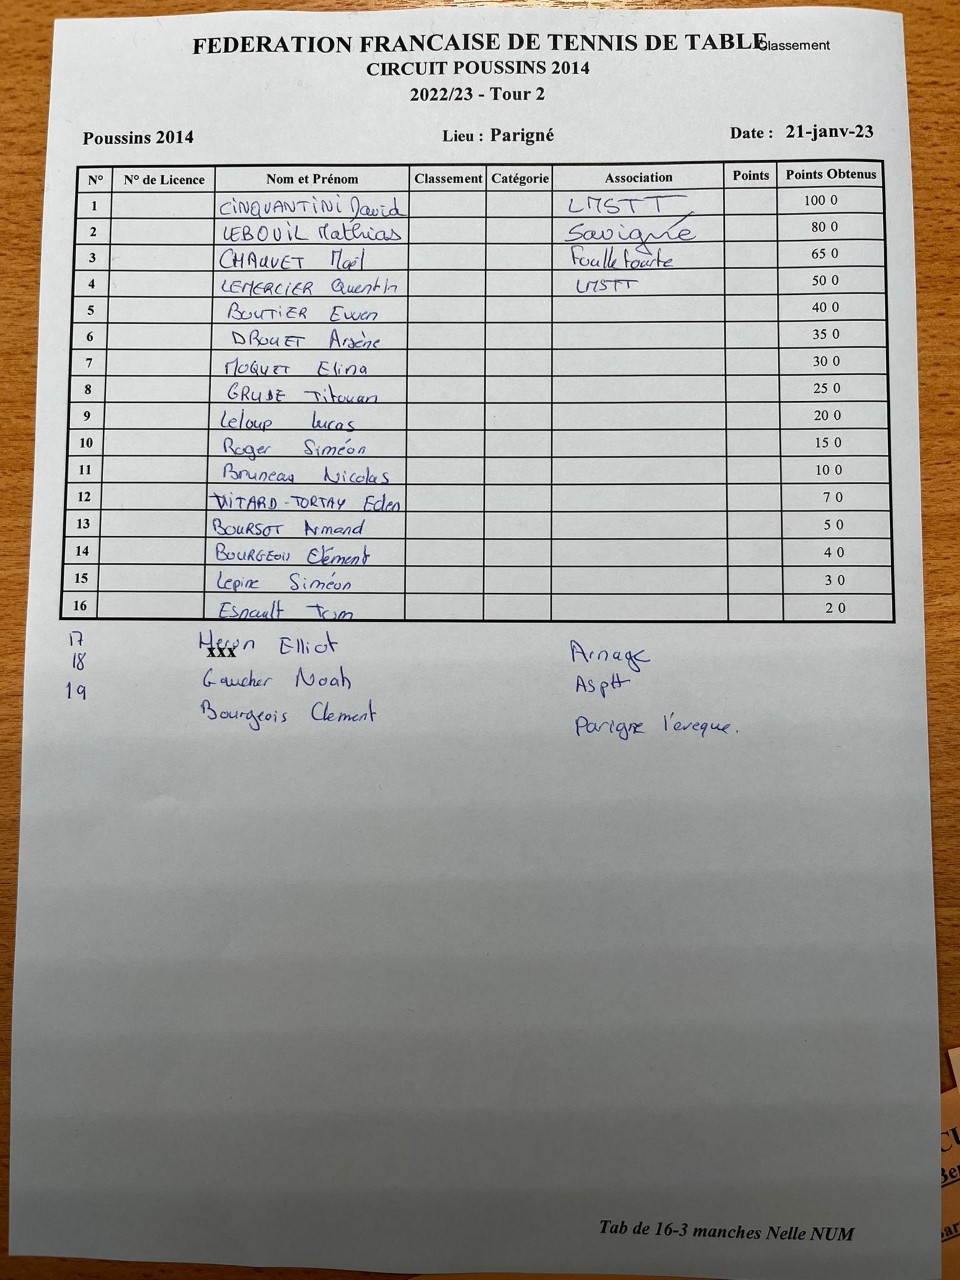 FEDERATION FRANCAISE DE TENNIS DE TABLE Classement
CIRCUIT POUSSINS 2014
2022/23 - Tour 2
Poussins 2014 Lieu : Parigné Date : 21-janv-23
N° N° de Licence Nom et Prénom Classement Catégorie Association Points Points Obtenus
1 CINQUANTINI David LMSTT 100 0
2 LEBOUIL Mathias Savigné 80 0
3 CHAUVET Maël Foulletourte 65 0
4 LEMERCIER Quentin LMSTT 50 0
5 BOUTIER Ewen 40 0
6 DROUET Arsène 35 0
7 MOQUET Elina 30 0
8 GRUDE Titouan 25 0
9 Leloup Lucas 20 0
10 Roger Siméon 15 0
11 Bruneau Nicolas 10 0
12 VITARD-TORTAY Eden 7 0
13 BOURSOT Armand 5 0
14 BOURGEON Clément 4 0
15 Lepine Siméon 3 0
16 Esnault Tom 2 0
17 Elliot Arnage
xxx
18 Gaucher Noah Asptt
19 Bourgeois Clement Parigne l'eveque.
Tab de 16-3 manches Nelle NUM